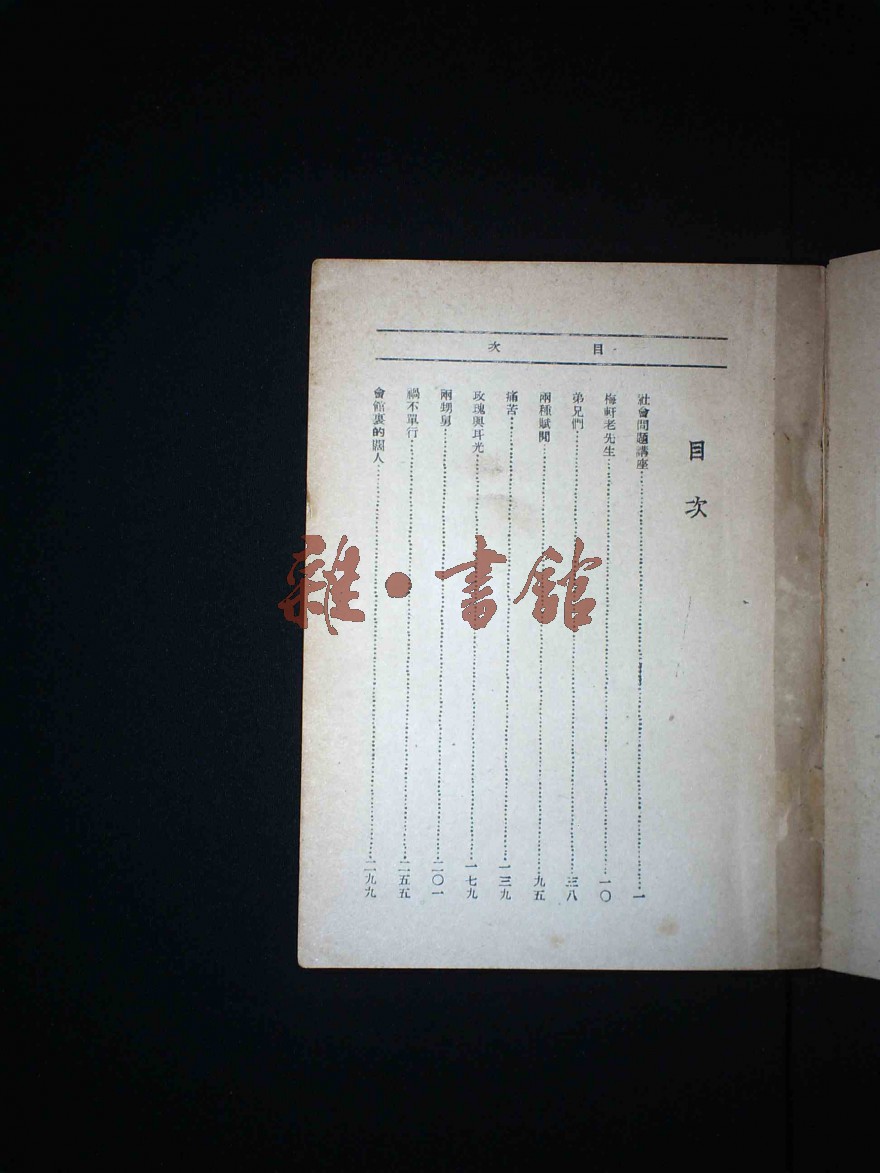 目次
目次
社會問題講座一
梅軒老先生一〇
弟兄們三八
兩種賦閒九五
痛苦一三九
玫瑰與耳光一七九
兩甥舅二〇一
禍不單行二五五
會館裏的闊人二九九
雜·書館